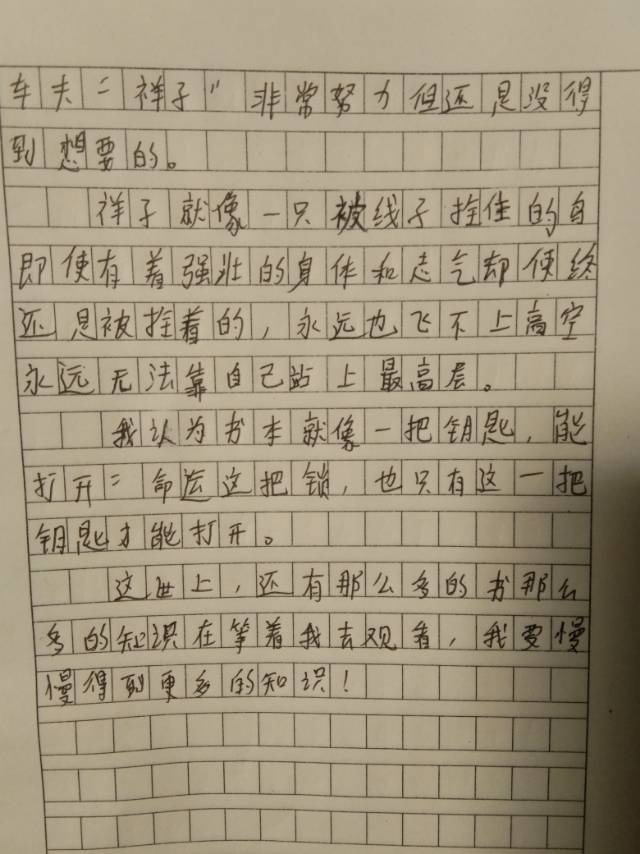 车夫“祥子”非常努力但还是没得
到想要的。
祥子就像一只被线子拴住的鸟
即使有着强壮的身体和志气却使终
还是被拴着的，永远也飞不上高空
永远无法靠自己站上最高层。
我认为书本就像一把钥匙，能
打开“命运这把锁，也只有这一把
钥匙才能打开。
这世上，还有那么多的书那么
多的知识在等着我去观看，我要慢
慢得到更多的知识！